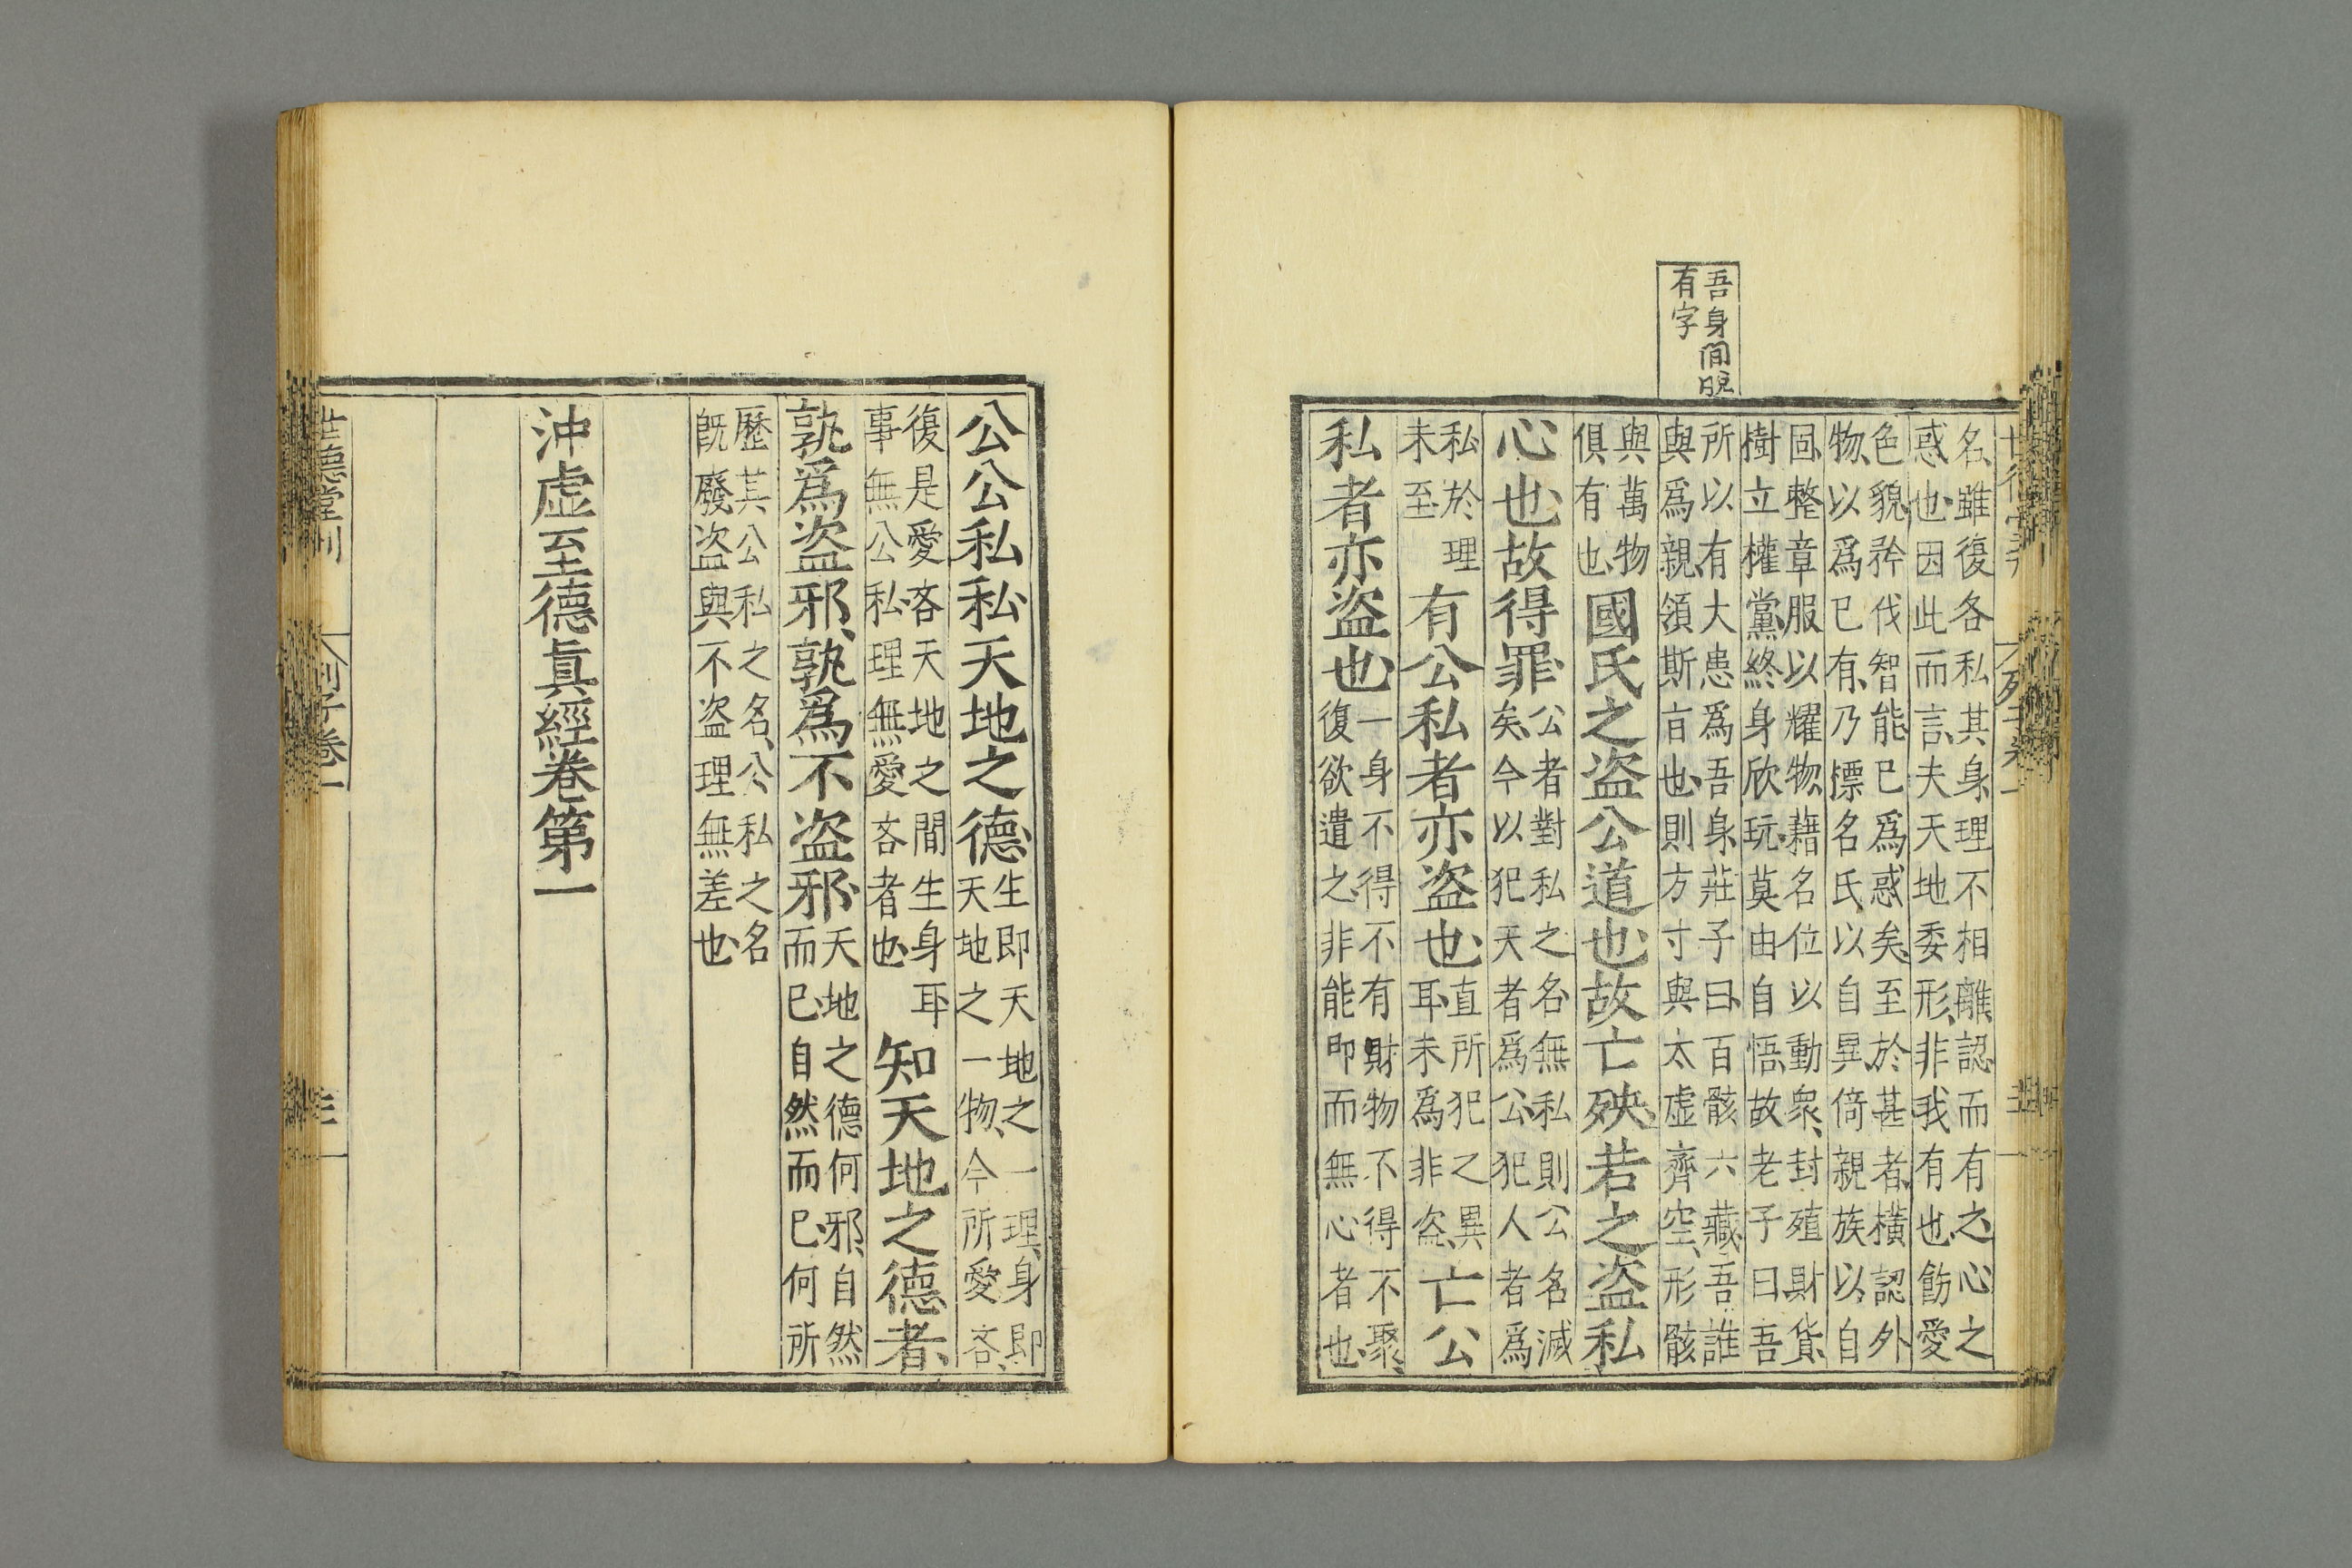 吾身間脫
有字
名、雖復各私其身、理不相離、認而有之、心之
惑也、因此而言、夫天地委形、非我有也、飭愛
色貌、矜伐智能、已爲惑矣、至於甚者、橫認外
物、以爲已有、乃標名氏、以自異、倚親族以自
固、整章服以耀物、藉名位以動衆、封殖財貨、
樹立權黨、終身欣玩、莫由自悟、故老子曰、吾
所以有大患爲吾身、莊子曰、百骸六藏、吾誰
與爲親、領斯㫖也、則方寸與太虛齊空、形骸
與萬物
俱有也
國氏之盜公道也、故亡殃、若之盜私
心也、故得罪、
公者對私之名、無私則公名滅
矣、今以犯天者爲公、犯人者爲
私於理
未至
有公私者亦盜也、
直所犯之異
耳、未爲非盜、
亡公
私者亦盜也、
一身不得不有、財物不得不聚、
復欲遺之、非能即而無心者也、
公公私私、天地之德、
生即天地之一理、身即
天地之一物、今所愛吝、
復是愛吝天地之間生身耳
事無公私、理無愛吝者也、
知天地之德者、
孰爲盜邪、孰爲不盜邪、
天地之德何邪、自然
而已、自然而已、何所
歷其公私之名、公私之名
旣廢盜與不盜理無差也、
沖虛至德眞經卷第一
世德堂刊
列子卷一